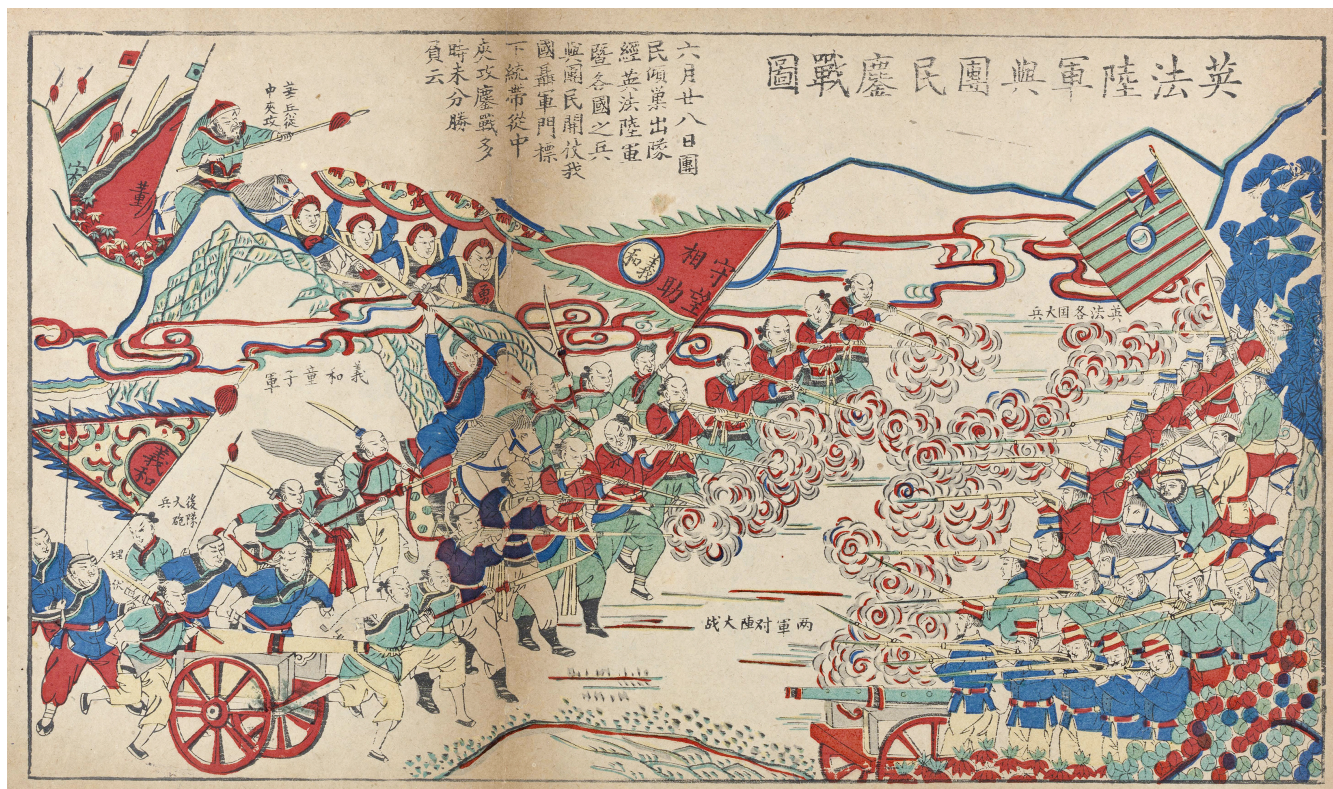 英法陸軍與團民鏖戰圖
六月廿八日團
民傾巢出隊
經英法陸軍
暨各國之兵
與團民開仗我
國聶軍門標
下統帶從中
夾攻鏖戰多
時未分勝
負云
董兵從
中夾攻
宋
董
勇
守望
相助
義和
英法各国大兵
義和童子軍
義和
後隊
大砲
兵
埋
伏
两軍对陣大战